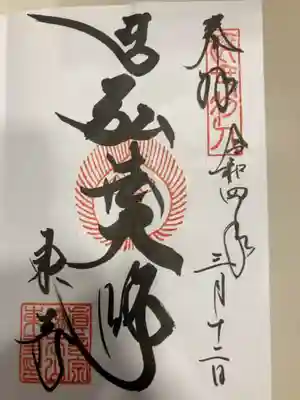 奉拝 令和四年三月十二日
弘法大師
東寺